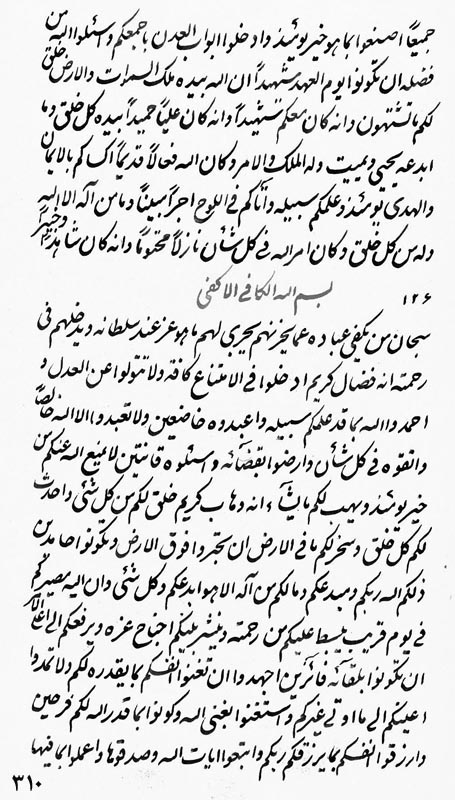 جميعاً اصنعوا بما هو خير يومئذ وادخلوا ابواب العدن باجمعكم واسئلوا الله من
فضله ان تكونوا يوم العهد شهيداً ان الله بيده ملك السموات والارض خلق
لكم ما تشتهون وانه كان معكم شهيداً وانه كان علياً حميداً بيده كل خلق وما
ابدعه يحيي ويميت وله الملك والامر وكان الله فعالاً قديماً اتاكم بالايمان
والهدى يومئذ وعلمكم سبيله واتاكم في اللوح اجراً مبيناً وما من آله الا اليه
وله من كل خلق وكان امر الله في كل شأن نازلاً محتوماً وانه كان شاهداً وخبيراً
١٢٦ بسم الله الكافي الاكفى
سبحان من يكفي عباده عما يحزنهم يجزى لهم ما هو عز عند سلطانه ويدخلهم في
رحمته انه فضال كريم ادخلوا في الامتناع كافة ولا تتولوا عن العدل و
احمدوا الله بما قد علمكم سبيله واعبدوه خاضعين ولا تعبدوا الا الله خالصاً
واتقوه في كل شأن وارضوا بقضائه واسئلوه قانتين لا يمنع الله عنكم من
خير يومئذ ويهب لكم ما يشآء انه وهاب كريم خلق لكم من كل شئ واحدث
لكم كل خلق وسخر لكم ما في الارض ان تجروا فوق الارض وتكونوا حامدين
ذلكم الله ربكم ومبدعكم وما لكم من آله الا هو ابدعكم وكل شئ وان اليه مصيركم
في يوم قريب يبسط عليكم من رحمته وينشر عليكم اجناح عزه ويرفعكم الى اعلى الامر
ان تكونوا بلقائه فائزين اجهدوا ان تغنوا انفسكم بما يقدره لكم ولا تمدوا
اعينكم الى ما اوتي غيركم واستغنوا بغنى الله وكونوا بما قدر الله لكم فرحين
وارزقوا انفسكم بما يرزقكم ربكم واتبعوا ايات الله وصدقوها واعملوا بما فيها
٣١٠